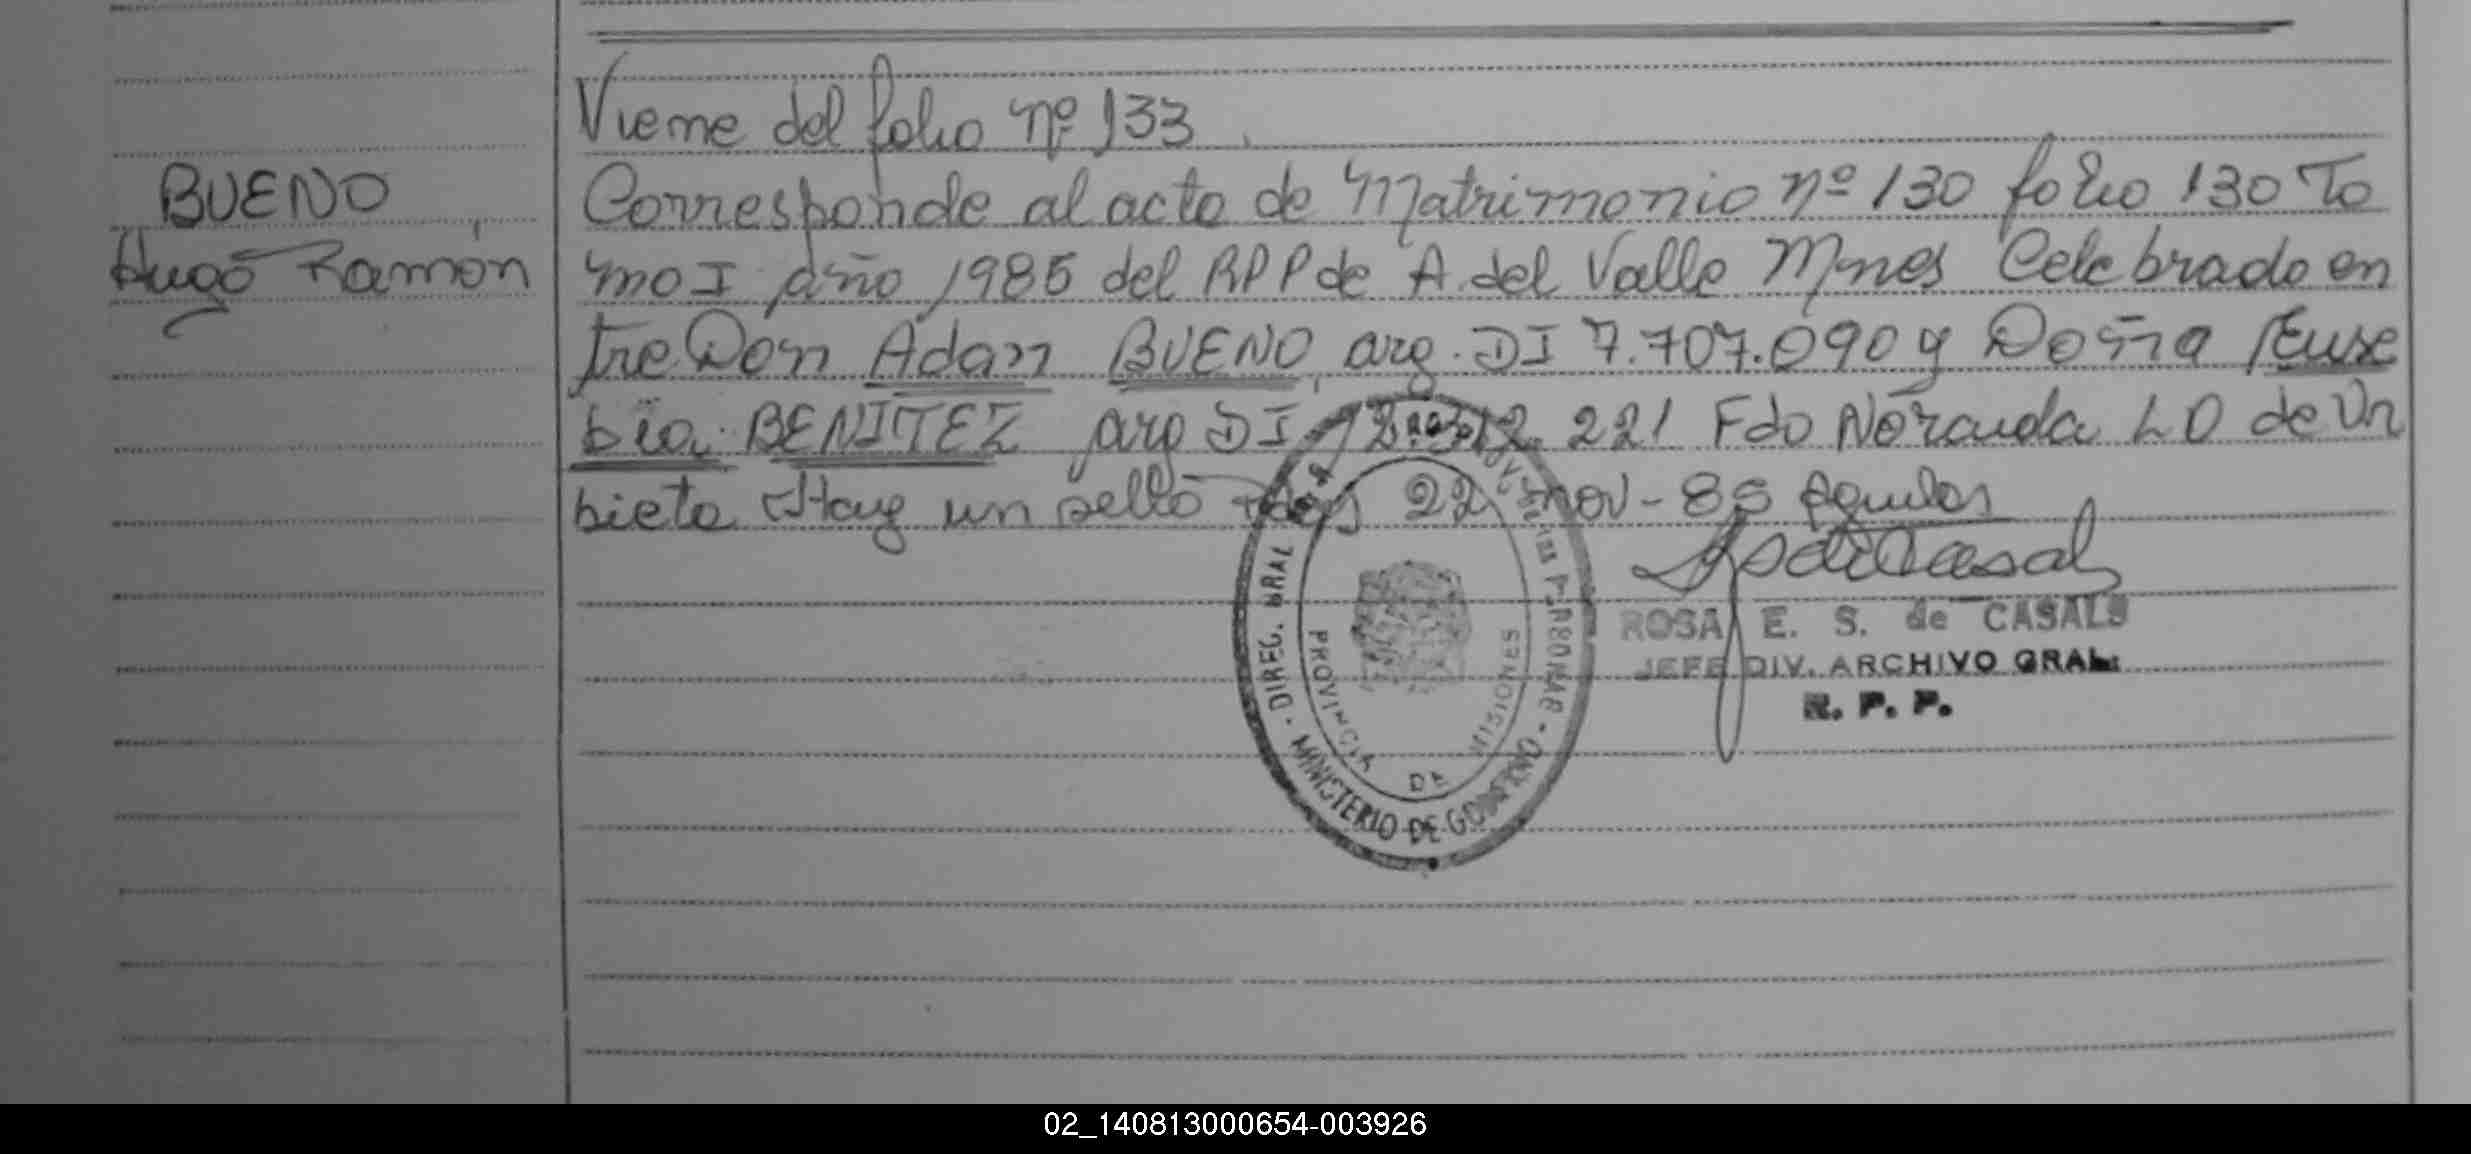 Viene del folio nº 133.
BUENO,
Hugo Ramón
Corresponde al acta de Matrimonio nº 130 folio 130 To
mo I año 1985 del RPP de A. del Valle Mnes Celebrado en
tre Don Adan BUENO, arg. DI 7.707.090 y Doña Euse
bia BENITEZ arg DI 221 Fdo L D de Ur
bieta Hay un sello 22 nov-85
ROSA E. S. de CASALS
JEFE DIV. ARCHIVO GRAL.
R. P. P.
DIREC. GRAL DE LAS PERSONAS - MINISTERIO DE GOBIERNO -
PROVINCIA DE MISIONES
02_140813000654-003926